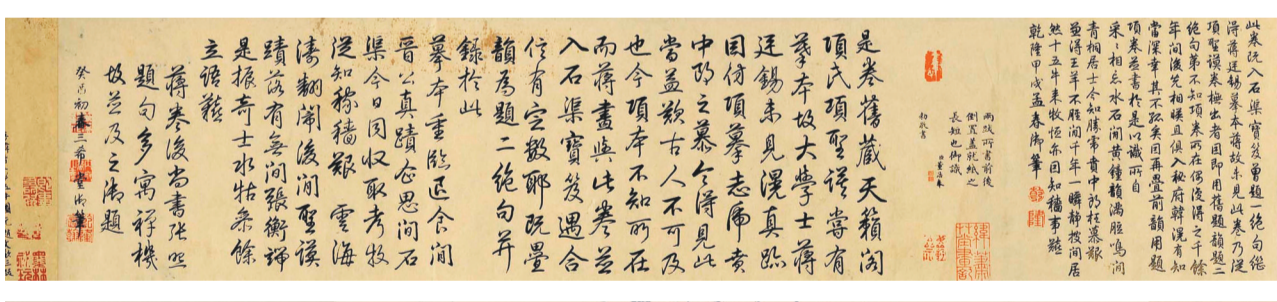 此卷既入石渠寶笈曾題一絕句繼
得蔣廷錫摹本蔣故未見此卷乃從
項聖謨卷撫出者因即用舊題韻題二
絕句第不知項卷所在倘復得之千餘
年間後先相映且俱入秘府韓滉有知
當深幸其不孤矣因再疊前韻用題
項卷並書於是以識所自
采采相忘水石間黃鍾韻滿脰鳴間
青桐居士今知勝常賁中郎枉慕艱
並得不脛間千年一瞬靜披間居
然十五牛來牧恆尔因知穡事艱
乾隆甲戌孟春御筆
乾
隆
兩跋所書前後
倒置蓋就紙之
長短也御識
臣董誥奉
勅敬書
是卷舊藏天籟閣
項氏項聖謨嘗有
摹本故大學士蔣
廷錫未見滉真跡
因仿項摹志虎賁
中郎之慕今得見此
當益歎古人不可及
也今項本不知所在
而蔣畫與此卷並
入石渠寶笈遇合
信有定數耶既疊
韻為題二絕句并
錄於此
摹本重臨退食間
晉公真蹟企思間石
渠今日同收取考牧
從知稼穡艱 雲海
濤翻鬧後間聖謨
蹟落有無間張衡禪
是振奇士水牯參餘
立語艱
蔣卷後尚書張照
題句多寓禪機
故並及之御題
癸酉初春三希堂御筆